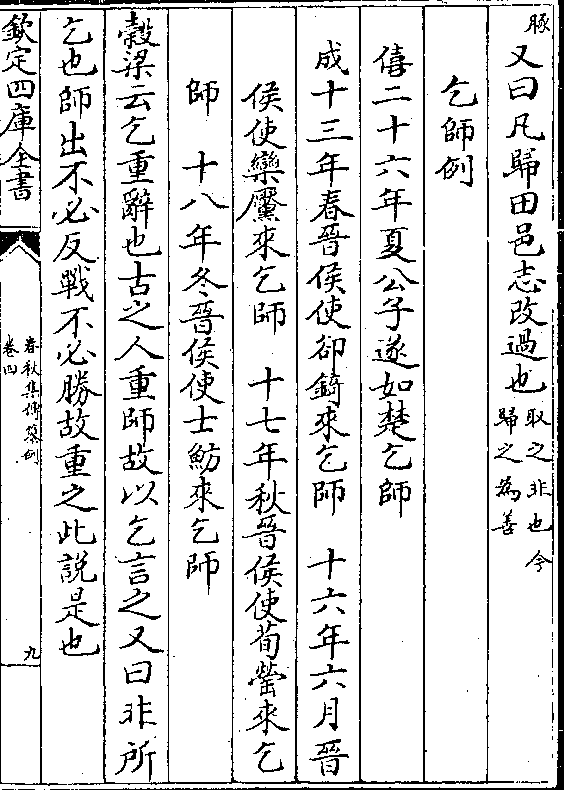 豚
又曰凡歸田邑志改過也取之非也今
歸之為善
乞師例
僖二十六年夏公子遂如楚乞師
成十三年春晉侯使郤錡來乞師　十六年六月晉
侯使欒黶來乞師　十七年秋晉侯使荀罃來乞
師　十八年冬晉侯使士魴來乞師
穀梁云乞重辭也古之人重師故以乞言之又曰非所
乞也師出不必反戰不必勝故重之此説是也
欽定四庫全書
春秋集傳纂例
卷四
九